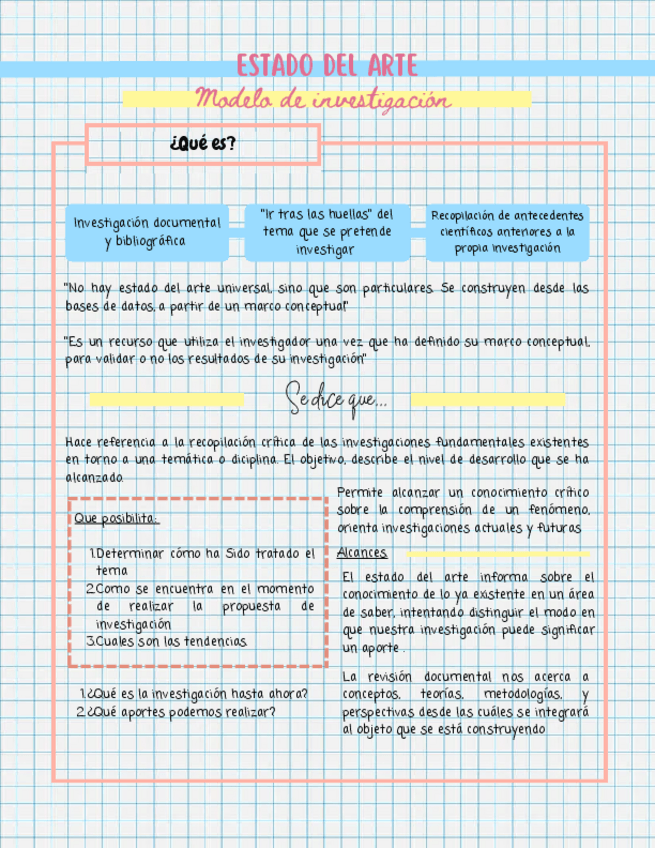 ESTADO DEL ARTE
Modelo de investigación
¿Qué es?
Investigación documental
y bibliográfica
"Ir tras las huellas" del
tema que se pretende
investigar
Recopilación de antecedentes
científicos anteriores a la
propia investigación
"No hay estado del arte universal, sino que son particulares. Se construyen desde las
bases de datos, a partir de un marco conceptual"
"Es un recurso que utiliza el investigador una vez que ha definido su marco conceptual,
para validar o no los resultados de su investigación"
Se dice que...
Hace referencia a la recopilación crítica de las investigaciones fundamentales existentes
en torno a una temática o diciplina. El objetivo, describe el nivel de desarrollo que se ha
alcanzado.
Que posibilita:
1.Determinar cómo ha Sido tratado el
tema
2.Como se encuentra en el momento
de realizar la propuesta de
investigación
3.Cuales son las tendencias
1.¿Qué es la investigación hasta ahora?
2.¿Qué aportes podemos realizar?
Permite alcanzar un conocimiento crítico
sobre la comprensión de un fenómeno,
orienta investigaciones actuales y futuras
Alcances
El estado del arte informa sobre el
conocimiento de lo ya existente en un área
de saber, intentando distinguir el modo en
que nuestra investigación puede significar
un aporte .
La revisión documental nos acerca a
conceptos, teorías, metodologías, y
perspectivas desde las cuáles se integrará
al objeto que se está construyendo